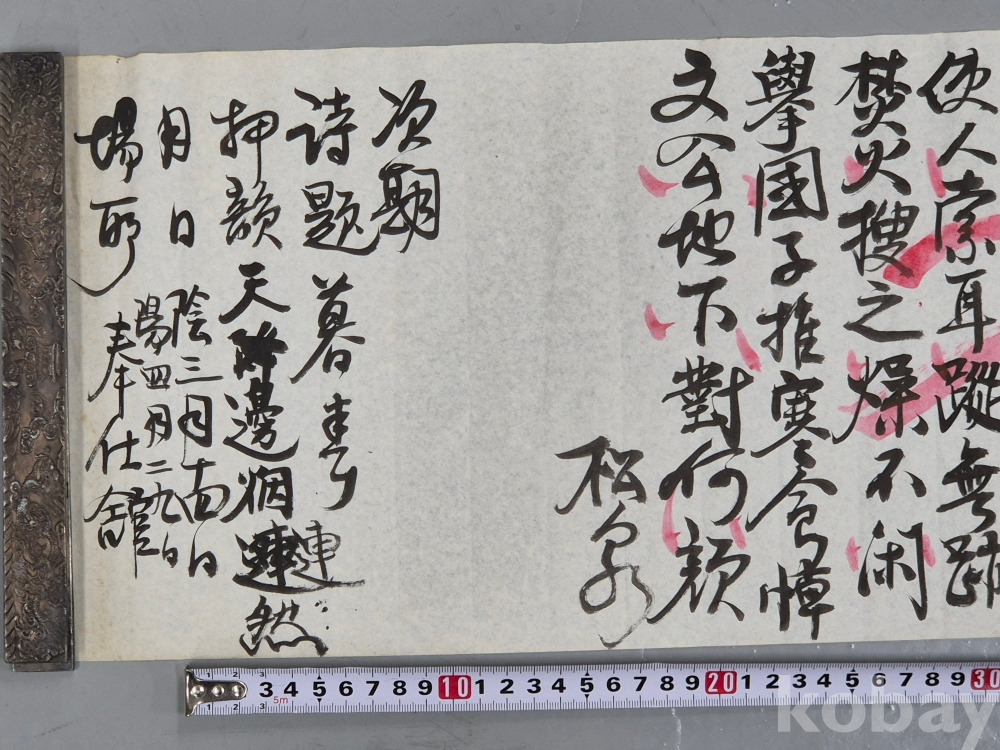 使人索耳蹤無跡
焚火搜之燥不閑
擧國子推寒食悼
文公地下對何顔
松泉
次期
詩題 暮春
押韻 天邊烟連然
月日 陰三月十四日
陽四月二九日
場所 奉仕館
3 4 5 6 7 8 9 10 1 2 3 4 5 6 7 8 9 20 1 2 3 4 5 6 7 8 9 30
5m
kobay